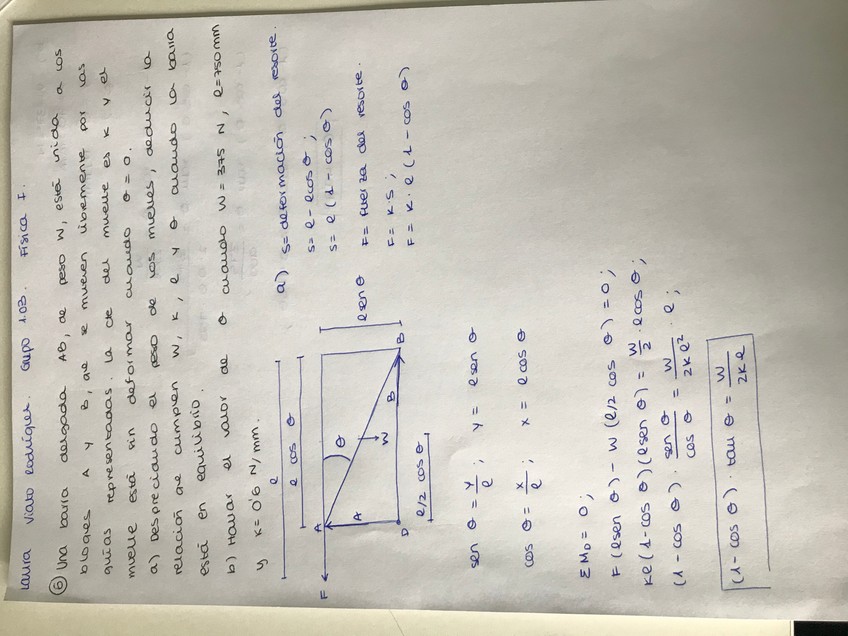 Laura Viato Rodríguez. Grupo 1.03. Física I.
⑥ Una barra delgada AB, de peso W, está unida a los
bloques A y B, que se mueven libremente por las
guías representadas. La cte del muelle es K y el
muelle está sin deformar cuando θ = 0.
a) Despreciando el peso de los muelles, deducir la
relación que cumplen W, K, l y θ cuando la barra
está en equilibrio.
b) Hallar el valor de θ cuando W = 375 N, l = 750mm
y K = 0'6 N/mm.
l
l cos θ
F
A
θ
l sen θ
A
W
B
B
D
l/2 cos θ
a) S = deformación del resorte.
S = l - l cos θ ;
S = l (1 - cos θ)
F = fuerza del resorte.
F = K·S ;
F = K·l (1 - cos θ)
sen θ = y/l ; y = l sen θ
cos θ = x/l ; x = l cos θ
Σ M_D = 0 ;
F (l sen θ) - W (l/2 cos θ) = 0 ;
Kl (1 - cos θ) (l sen θ) = W/2 · l cos θ ;
(1 - cos θ) · sen θ/cos θ = W/2Kl² · l ;
(1 - cos θ) · tan θ = W/2Kl